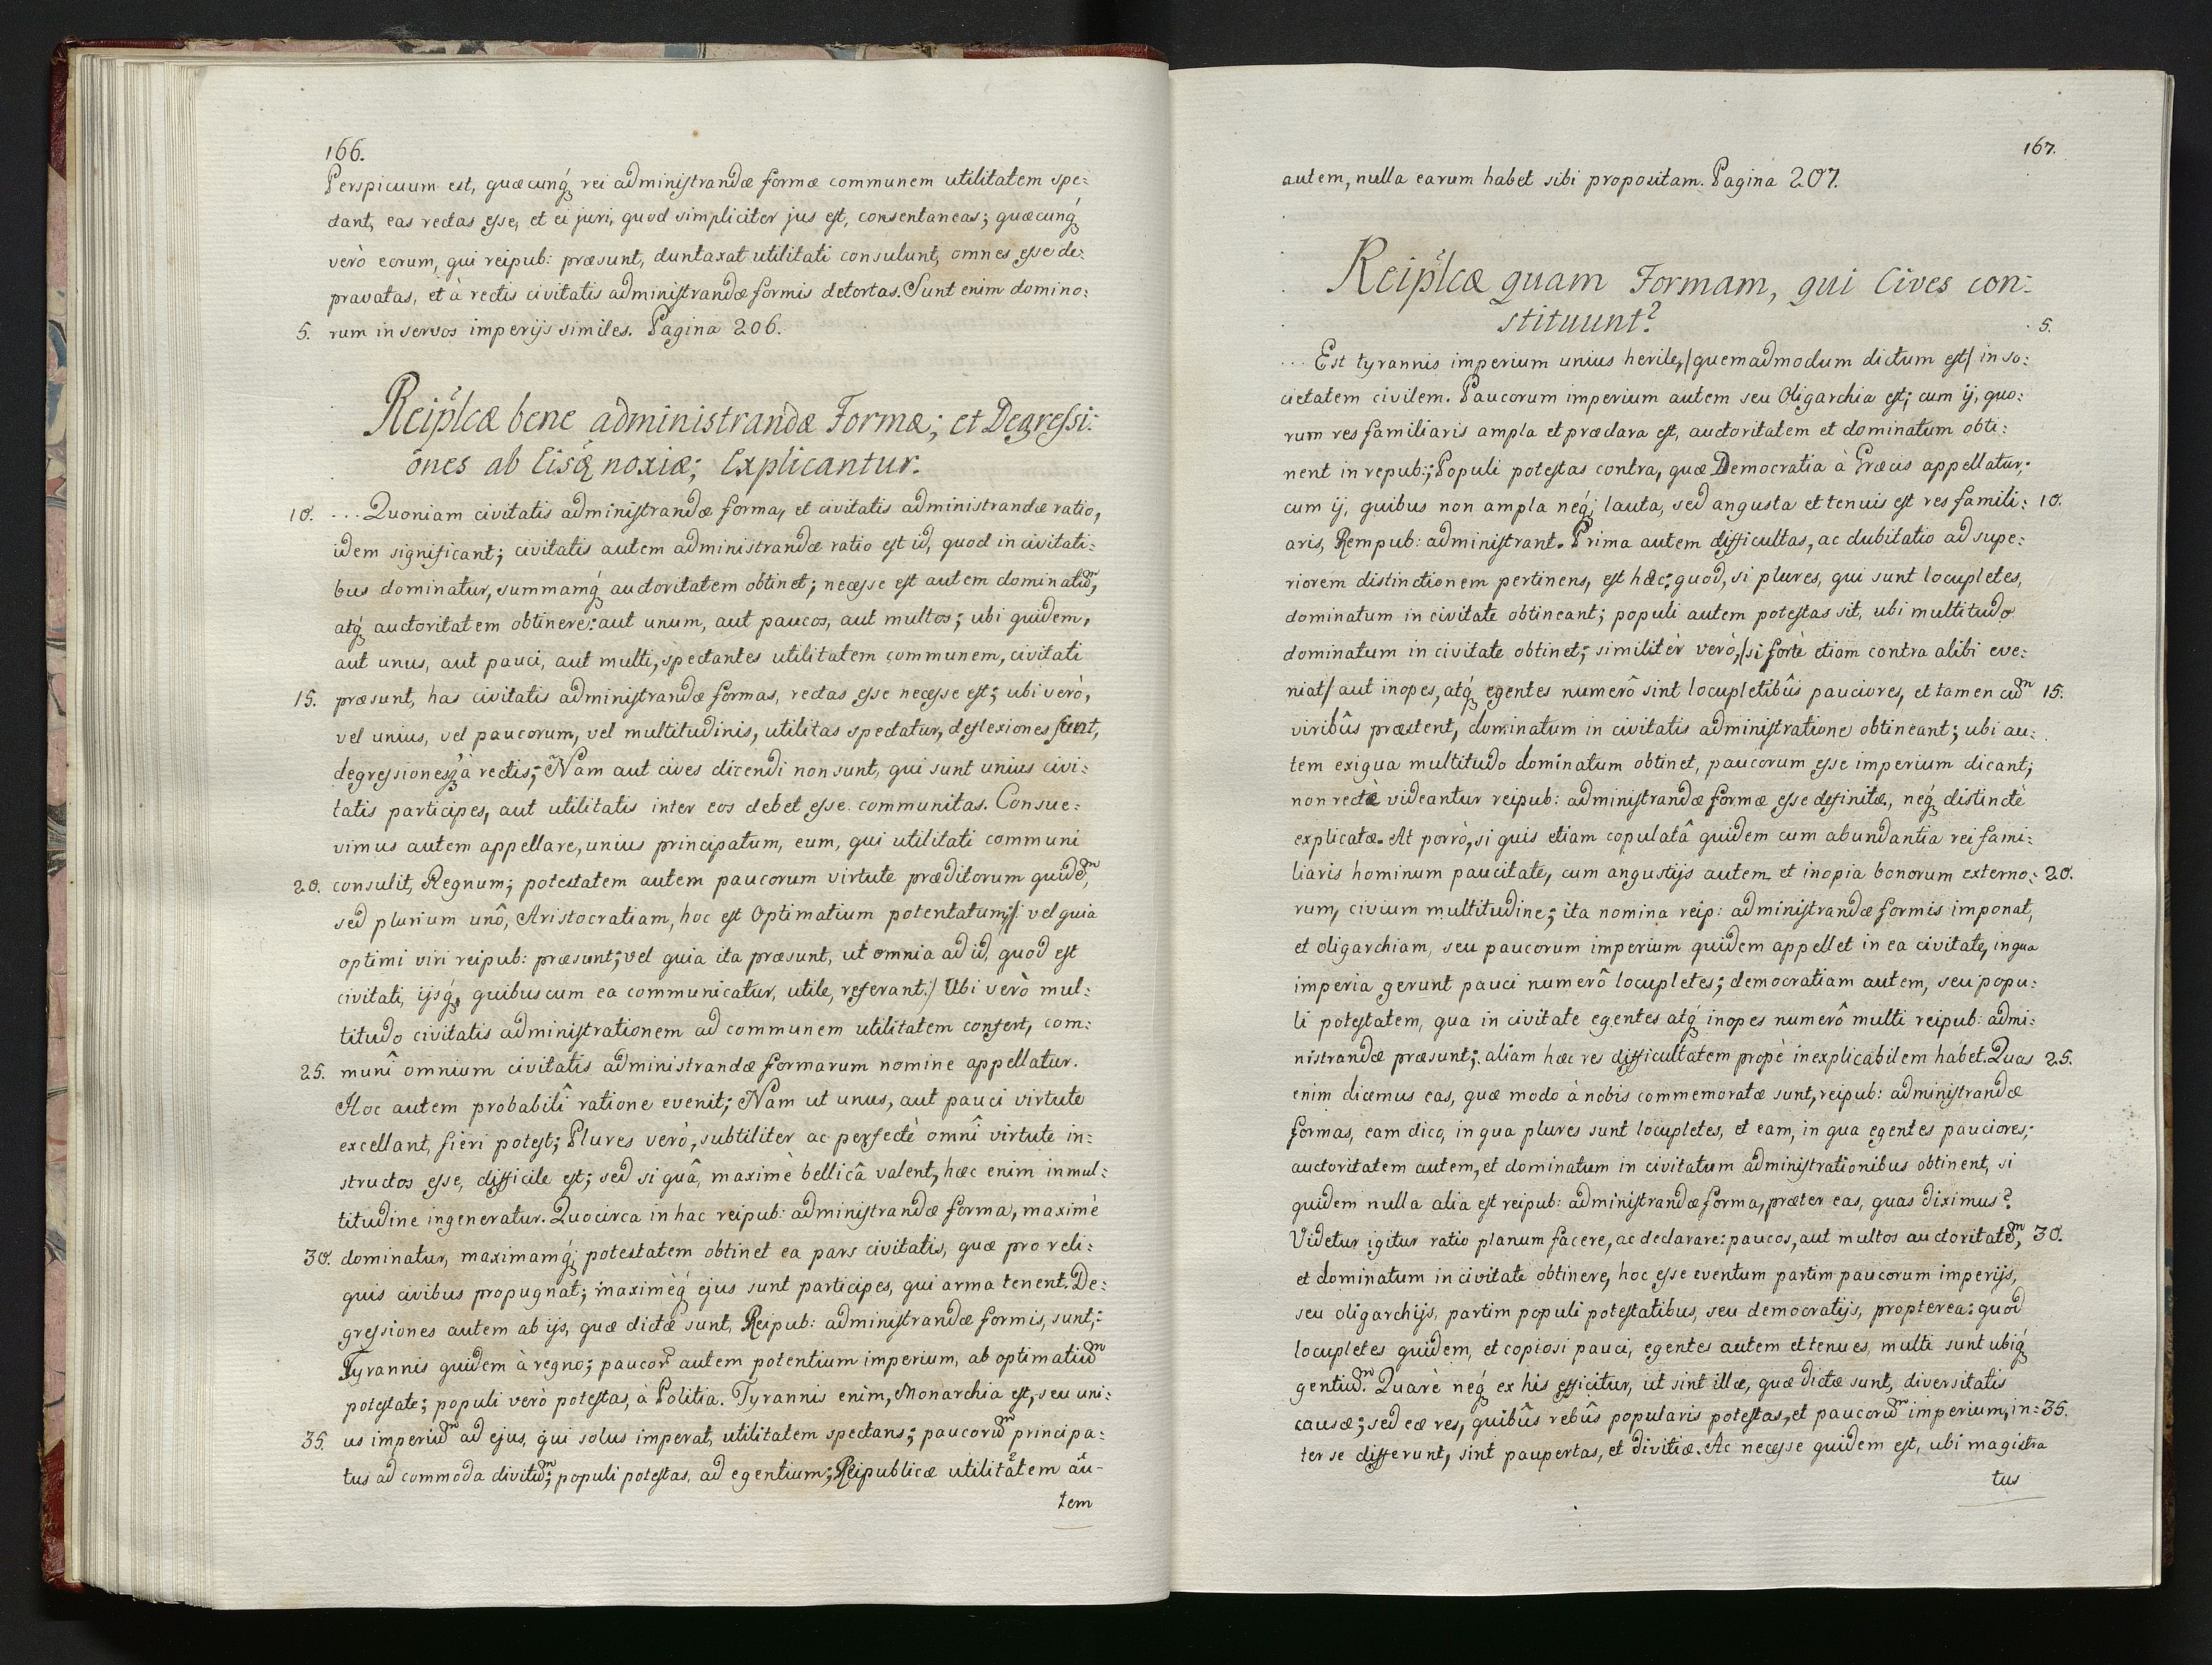 166.
Perspicuum est, quæcunq́ʒ rei administrandæ formæ communem utilitatem spe:
ctant, eas rectas esse, et ei juri, quod simpliciter jus est, consentaneas; quæcunq́ʒ
verò eorum, qui reipub: præsunt, duntaxat utilitati consulunt, omnes esse de:
pravatas, et à rectis civitatis administrandæ formis detortas. Sunt enim domino:
5. rum in servos imperijs similes. Pagina 206.
Reip̃lcæ bene administrandæ Formæ; et Degressi:
ones ab Eisq̃ noxiæ; Explicantur.
10. ... Quoniam civitatis administrandæ forma, et civitatis administrandæ ratio,
idem significant; civitatis autem administrandæ ratio est id, quod in civitati:
bus dominatur, summamq́ʒ auctoritatem obtinet; necesse est autem dominatũm,
atq́ʒ auctoritatem obtinere: aut unum, aut paucos, aut multos; ubi quidem,
aut unus, aut pauci, aut multi, spectantes utilitatem communem, civitati
15. præsunt, has civitatis administrandæ formas, rectas esse necesse est; ubi verò,
vel unius, vel paucorum, vel multitudinis, utilitas spectatur, deflexiones sunt,
degressionesq́ʒ à rectis; Nam aut cives dicendi non sunt, qui sunt unius civi:
tatis participes, aut utilitatis inter eos debet esse communitas. Consue:
vimus autem appellare, unius principatum, eum, qui utilitati communi
20. consulit, Regnum; potestatem autem paucorum virtute præditorum quidẽm,
sed plurium unô, Aristocratiam, hoc est Optimatium potentatum;/: vel quia
optimi viri reipub: præsunt; vel quia ita præsunt, ut omnia ad id, quod est
civitati, ijsq́ʒ, quibuscum ea communicatur, utile, referant:/ Ubi verò mul:
titudo civitatis administrationem ad communem utilitatem confert, com:
25. munî omnium civitatis administrandæ formarum nomine appellatur.
Hoc autem probabilî ratione evenit; Nam ut unus, aut pauci virtute
excellant, fieri potest; Plures verò, subtiliter ac perfectè omnî virtute in:
structos esse, difficile est; sed si quâ, maximè bellicâ valent, hæc enim in mul:
titudine ingeneratur. Quocirca in hac reipub: administrandæ forma, maximè
30. dominatur, maximamq́ʒ potestatem obtinet ea pars civitatis, quæ pro reli:
quis civibus propugnat; maximèq́ʒ ejus sunt participes, qui arma tenent. De:
gressiones autem ab ijs, quæ dictæ sunt, Reipub: administrandæ formis, sunt;:
Tyrannis quidem à regno; paucor̃ autem potentium imperium, ab optimatiũm
potestate; populi verò potestas, à Politia. Tyrannis enim, Monarchia est, seu uni:
35. us imperiũm ad ejus, qui solus imperat, utilitatem spectans; paucorũm principa:
tus ad commoda divitũm; populi potestas, ad egentium; Reipublicæ utilitatem au-
tem
167.
autem, nulla earum habet sibi propositam. Pagina 207.
Reip̃lcæ quam Formam, qui Cives con:
stituunt? 5.
... Est tyrannis imperium unius herile, /quemadmodum dictum est/ in so:
cietatem civilem. Paucorum imperium autem seu Oligarchia est; cum ij, quo:
rum res familiaris ampla et præclara est, auctoritatem et dominatum obti:
nent in repub:; Populi potestas contra, quæ Democratia à Græcis appellatur;
cum ij, quibus non ampla neq́ʒ lauta, sed angusta et tenuis est res famili: 10.
aris, Rempub: administrant. Prima autem difficultas, ac dubitatio ad supe:
riorem distinctionem pertinens, est hæc; quod, si plures, qui sunt locupletes,
dominatum in civitate obtineant; populi autem potestas sit, ubi multitudo
dominatum in civitate obtinet; similitèr verò, /si fortè etiam contra alibi eve:
niat/ aut inopes, atq́ʒ egentes numerô sint locupletibûs pauciores, et tamen cũm 15.
viribûs præstent, dominatum in civitatis administratione obtineant; ubi au:
tem exigua multitudo dominatum obtinet, paucorum esse imperium dicant;
non rectè videantur reipub: administrandæ formæ esse definitæ, neq́ʒ distinctè
explicatæ. At porrò, si quis etiam copulatâ quidem cum abundantia rei fami:
liaris hominum paucitate, cum angustijs autem et inopia bonorum externo: 20.
rum, civium multitudine; ita nomina reip: administrandæ formis imponat,
et oligarchiam, seu paucorum imperium quidem appellet in ea civitate, in qua
imperia gerunt pauci numerô locupletes; democratiam autem, seu popu:
li potestatem, qua in civitate egentes atq́ʒ inopes numerô multi reipub: admi:
nistrandæ præsunt; aliam hæc res difficultatem propè inexplicabilem habet. Quas 25.
enim dicemus eas, quæ modo à nobis commemoratæ sunt, reipub: administrandæ
formas, eam dico, in qua plures sunt locupletes, et eam, in qua egentes pauciores;
auctoritatem autem, et dominatum in civitatum administrationibus obtinent, si
quidem nulla alia est reipub: administrandæ forma, præter eas, quas diximus?
Videtur igitur ratio planum facere, ac declarare: paucos, aut multos auctoritatẽm, 30.
et dominatum in civitate obtinere, hoc esse eventum partim paucorum imperijs,
seu oligarchijs, partim populi potestatibus, seu democratijs, propterea: quod
locupletes quidem, et copiosi pauci, egentes autem et tenues, multi sunt ubiq́ʒ
gentiũm. Quarè neq́ʒ ex his efficitur, ut sint illæ, quæ dictæ sunt, diversitatis
causæ; sed eæ res, quibûs rebûs popularis potestas, et paucorũm imperium, in: 35.
ter se differunt, sint paupertas, et divitiæ. Ac necesse quidem est, ubi magistra
tus